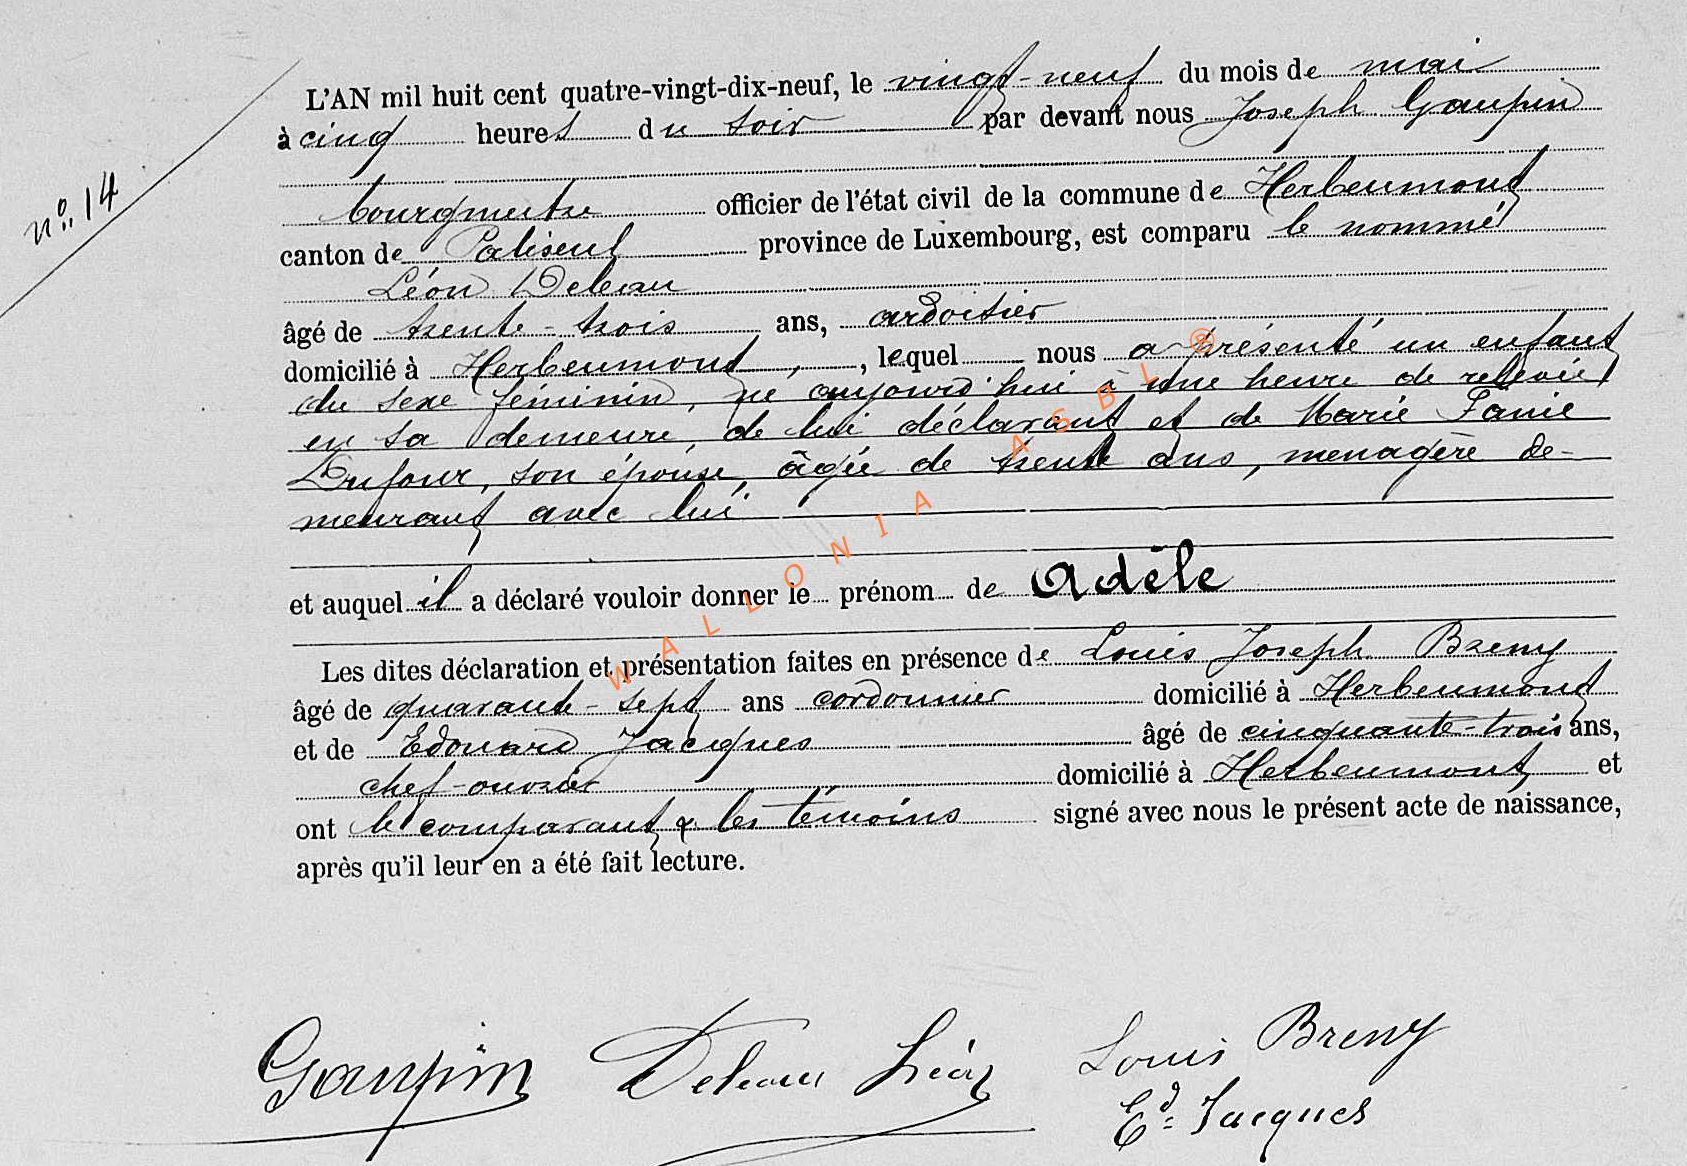 L'AN mil huit cent quatre-vingt-dix-neuf, le vingt-neuf du mois de mai
à cinq heures du soir par devant nous Joseph Gaupin
bourgmestre officier de l'état civil de la commune de Herbeumont
n° 14
canton de Paliseul province de Luxembourg, est comparu le nommé
Léon Deleau
âgé de trente-trois ans, ardoisier
domicilié à Herbeumont, , lequel nous a présenté un enfant
du sexe féminin, né aujourd'hui à une heure de relevée,
en sa demeure, de lui déclarant et de Marie Fanie
Dufour, son épouse, âgée de trente ans, menagère de-
meurant avec lui
et auquel il a déclaré vouloir donner le prénom de Adèle
Les dites déclaration et présentation faites en présence de Louis Joseph Breny
âgé de quarante-sept ans cordonnier domicilié à Herbeumont
et de Edouard Jacques âgé de cinquante-trois ans,
chef-ouvrier domicilié à Herbeumont et
ont le comparant & les témoins signé avec nous le présent acte de naissance,
après qu'il leur en a été fait lecture.
WALLONIA ASBL ®
Gaupin Deleau Léon Louis Breny
Ed. Jacques